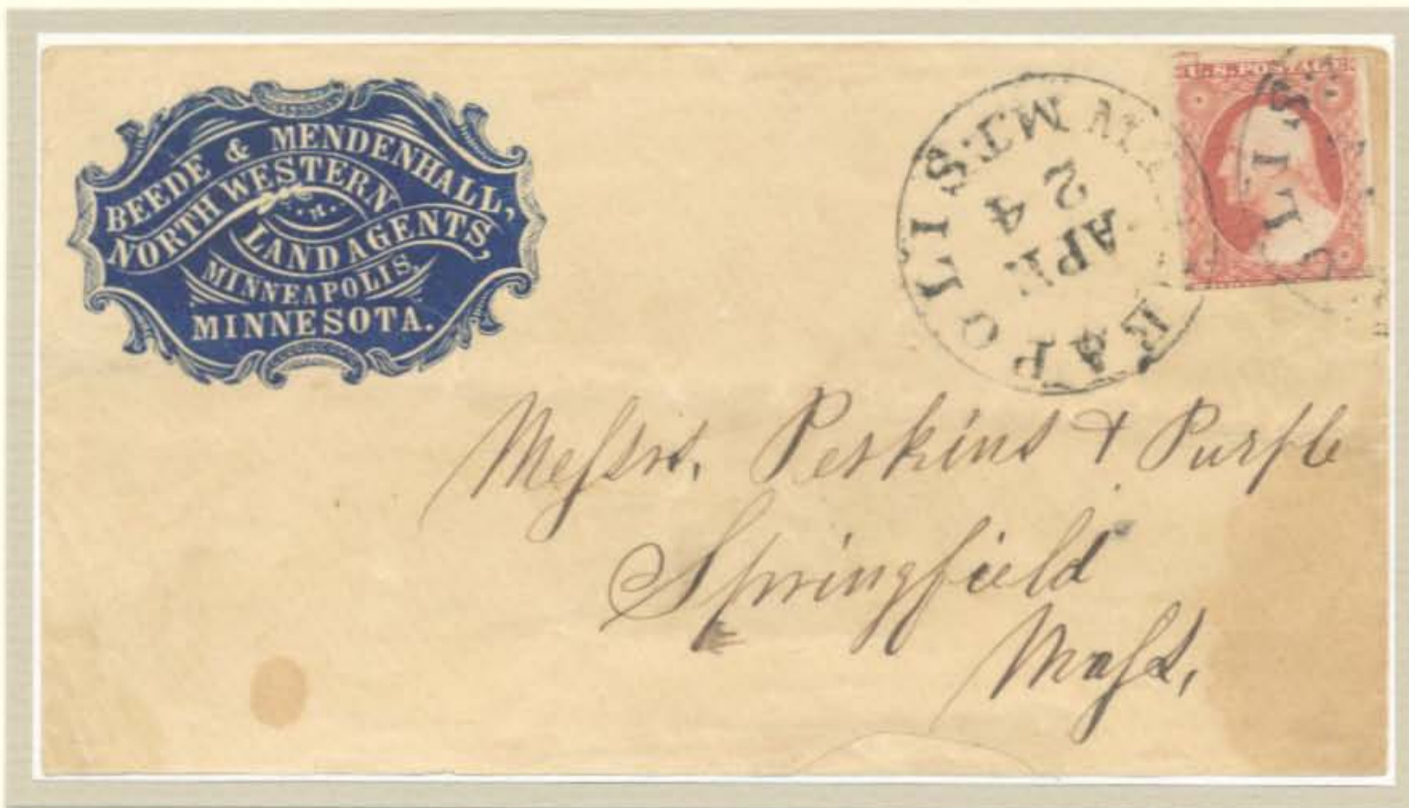 BEEDE & MENDENHALL,
NORTH WESTERN
LAND AGENTS,
MINNEAPOLIS,
MINNESOTA.
APOLIS M.T.
APR
24
U.S. POSTAGE
OLIS
Meſsrs. Perkins & Purple
Springfield
Maſs.